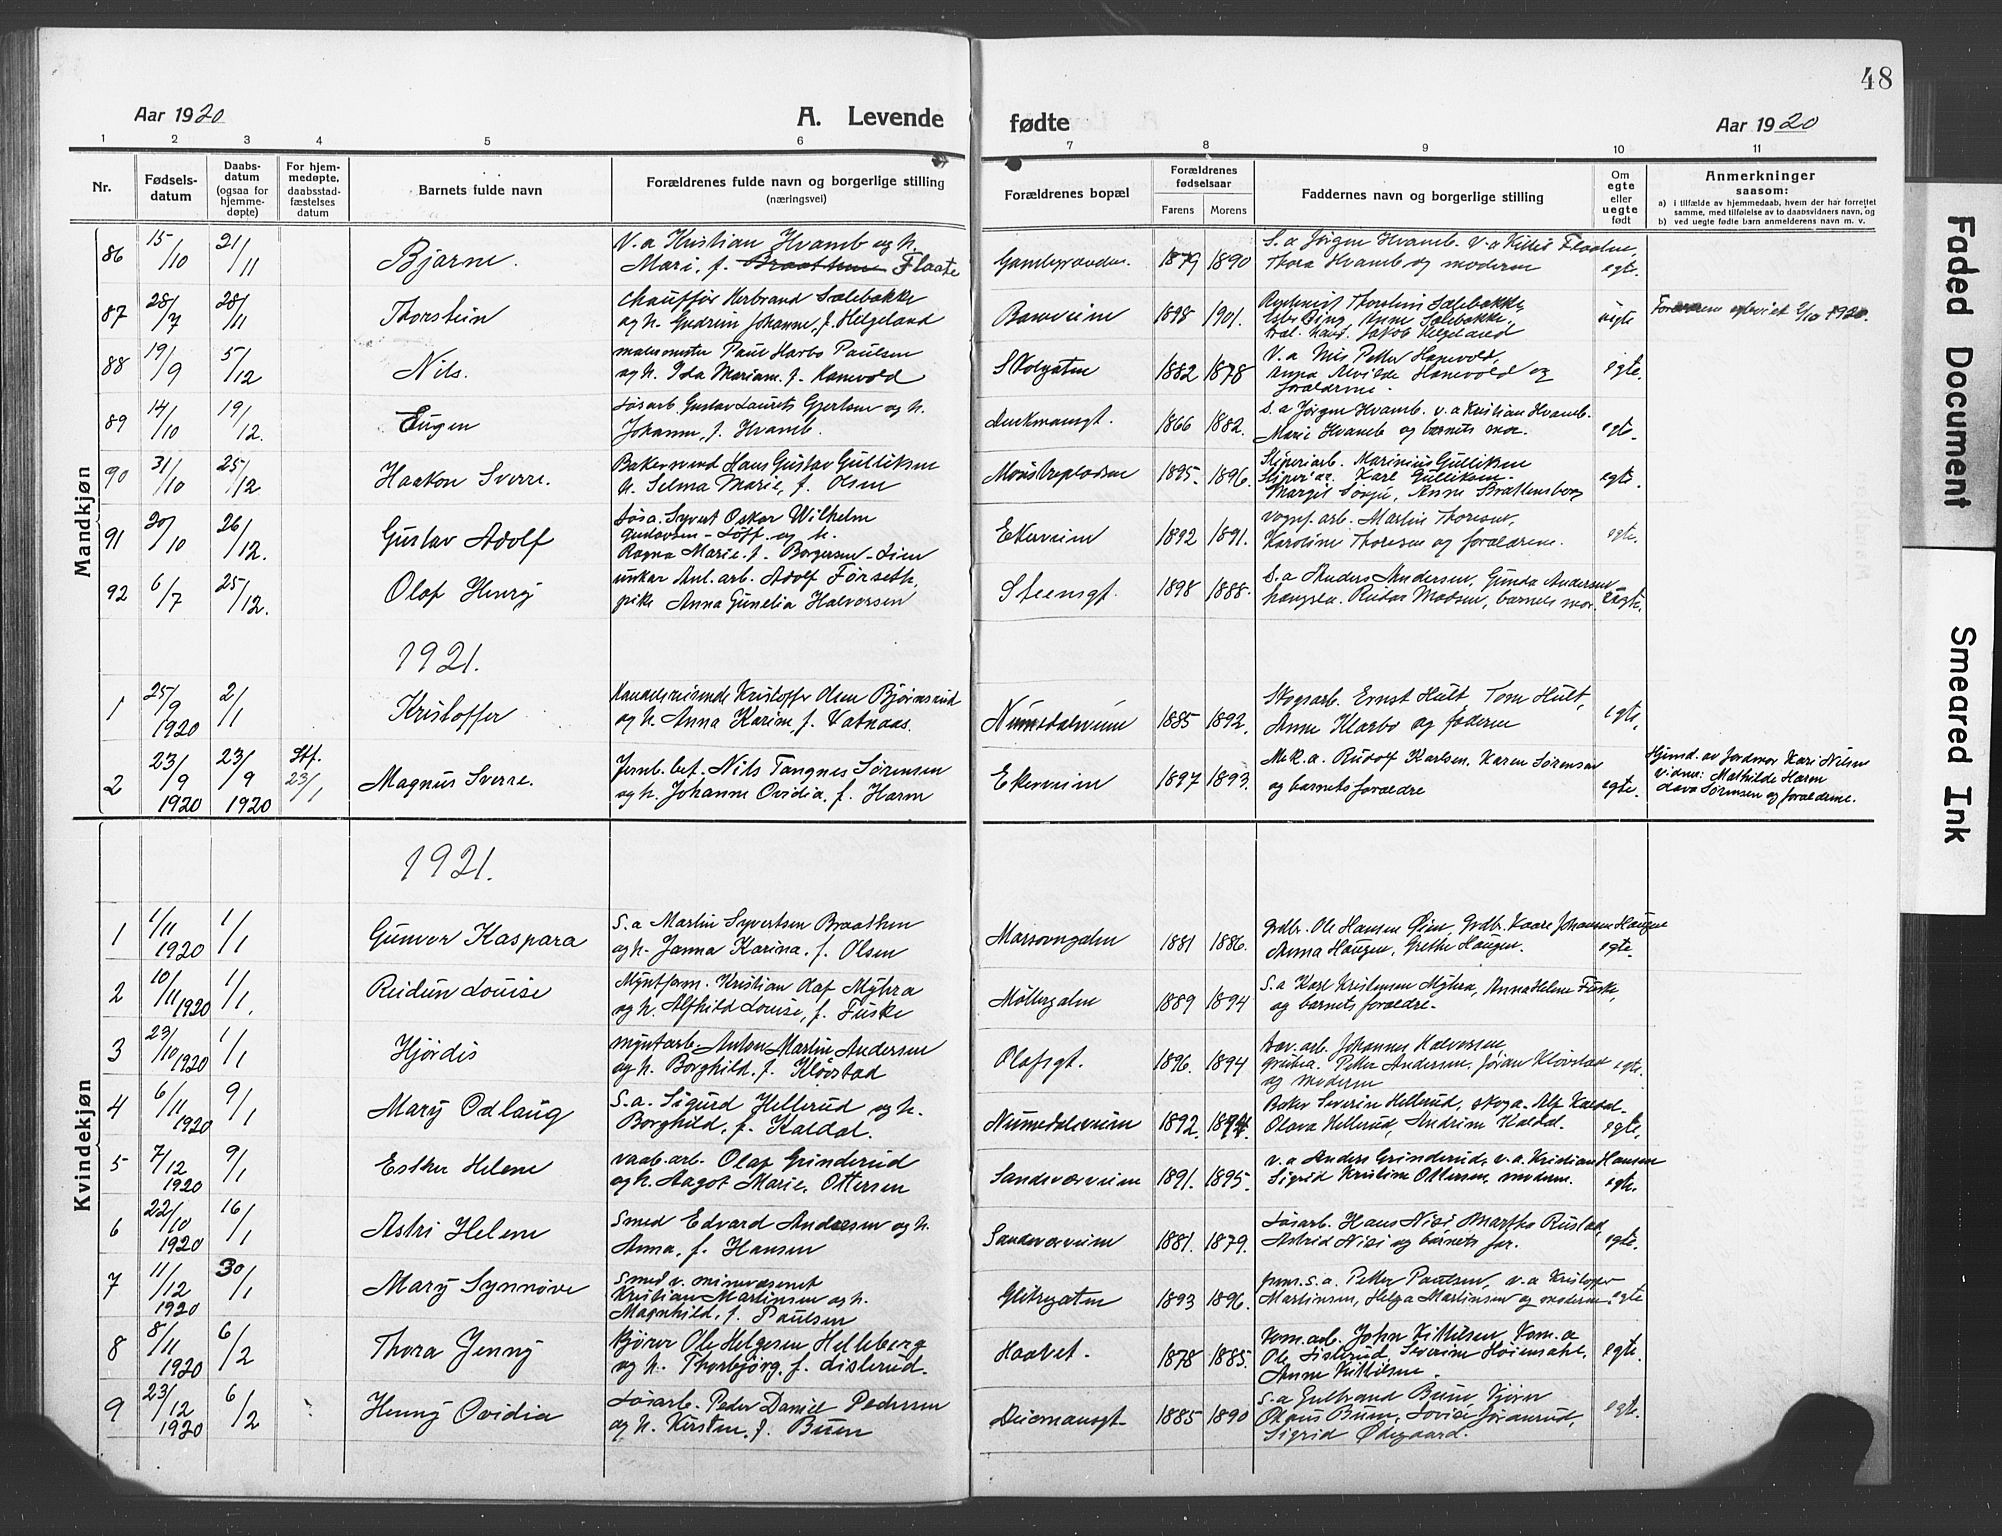 48
Aar 1920
A. Levende
fødte
Aar 1920
1 2 3 4 5 6 7 8 9 10 11
Nr.
Fødsels-
datum
Daabs-
datum
(ogsaa for
hjemme-
døpte)
For hjem-
medøpte,
daabsstad-
fæstelses
datum
Barnets fulde navn
Forældrenes fulde navn og borgerlige stilling
(næringsvei)
Forældrenes bopæl
Forældrenes
fødselsaar
Farens Morens
Faddernes navn og borgerlige stilling
Om
egte
eller
uegte
født
Anmerkninger
saasom:
a) i tilfælde av hjemmedaab, hvem der har forrettet
samme, med tilføielse av to daabsvidners navn, og
b) ved uegte fødte barn anmelderens navn m. v.
Mandkjøn
86 15/10 21/11 Bjarne. V. a Kristian Hvamb og h. 1879 1890 S. a Jørgen Hvamb. v. a
Mari, f. Braathen Flaate Thora Hvamb og moderen egte.
87 28/7 28/11 Thorstein Chauffør Herbrand Sælebakke 1898 1901. Thorstein Sælebakke,
og h. Gudrun Johanne, f. Helgeland Jakob Helgeland
88 19/9 5/12 Nils. malermester Paul Harbo Paulsen 1882 1878 V. a Nils Petter Hanevold, egte.
og h. Ida Mariam. f. Hanevold Anna Alvilde Hanevold og
forældrene.
89 14/10 19/12. Eugen Løsarb. Gustav Laurits Gjertsen og h. 1866 1882. S. a Jørgen Hvamb. v. a Kristian Hvamb.
Johanne, f. Hvamb. Marie Hvamb og barnets mor. egte.
90 31/10 25/12 Haakon Sverre. Bakersvend Hans Gustav Gulliksen 1895 1896. Sliperiarb. Marinius Gulliksen egte.
h. Selma Marie, f. Olsen Karl Gulliksen.
Anne Brattensborg
91 20/10 26/12. Gustav Adolf Løsa. Syvert Oskar Wilhelm Ekerveien 1892 1891. Vognf. arb. Martin Thoresen, egte.
Gustavsen - Løff. og h. Karoline Thoresen og forældrene.
Ragna Marie. f. Borgersen - Lien
92 6/7 25/12. Olaf Henry unkar Anl. arb. Adolf Førseth, Steensgt. 1898 1888. S. a Anders Andersen, Gunda Andersen
pike Anna Gunelia Halvorsen Reidar Madsen, barnets mor.
1921.
1 25/9 1920 2/1 Kristoffer Handelsreisende Kristoffer Olsen Bjørnsrud Numedalsveien 1885 1892. Skogsarb. Ernst Hult, Tom Hult, egte.
og h. Anna Karine, f. Vatnaas. Anne Klarbo og faderen
2 23/9 1920 23/9 1920 Stf. 23/1 Magnus Sverre. Jernb. bet. Nils Tangnes Sørensen Ekerveien 1897 1893. Mek. a. Rudolf Karlsen. Karen Sørensen egte.
og h. Johanne Ovidia, f. Harm og barnets forældre
Hjemd. av Jordmor Kari Nilsen
vidner: Mathilde Harm
Sørensen og forældrene.
Kvindekjøn
1921.
1 1/11 1920 1/1 Gunvor Kaspara S. a Martin Syvertsen Braathen 1881 1886. Grdbr. Ole Hansen Øien, Grdbr. Kaare Johansen Haugene
og h. Janna Karina. f. Olsen Anna Haugen, Grethe Haugen. egte.
2 10/11 1920 1/1. Reidun Louise Myntform. Kristian Olaf Myhra Møllergaten 1889 1894 S. a Karl Kristensen Myhra, Anna Helene Fuske,
og h. Alfhild Louise, f. Fuske og barnets forældre.
3 23/10 1920 1/1 Hjørdis Myntarb. Anton Martin Andersen Olafsgt. 1896. 1894 Johannes Halvorsen,
og h. Borghild. f. Kløvstad Petter Andersen. Jøran Kløvstad egte.
og moderen
4 6/11 1920 9/1 Mary Odlaug S. a. Sigurd Hellerud og h. Numedalsveien 1892. 1894. Baker Severin Hellerud, skoga. Alf Kaldal.
Borghild, f. Kaldal. Olava Hellerud, Andrine Kaldal. egte.
5 7/12 1920 9/1 Esther Helene vaab. arb. Olaf Grinderud Sandsværveien 1891. 1895. v. a Anders Grinderud, v. a. Kristian Hansen
og h. Aagot Marie. Ottersen Sigrid Kristine Ottersen, moderen. egte.
6 22/10 1920 16/1 Astri Helene Smed Edvard Andersen og h. Sandsværveien 1881. 1879. Løsarb. Hans Nisi Martha Rustad, egte.
Anna, f. Hansen Astrid Nisi og barnets far.
7 11/12 1920 30/1 Mary Synnøve Smed v. minevæsenet Glitregaten 1893 1896. Petter Paulsen, v. a Kristoffer egte
Kristian Martinsen og h. Martinsen, Helga Martinsen og moderen
Magnhild, f. Paulsen
8 8/11 1920 6/2 Thora Jenny Kjører Ole Helgesen Helleberg Haavet. 1878 1885. Kom. arb. John Kittilsen, Kom. a egte.
og h. Thorbjørg. f. Listerud. Ole Listerud, Severine
Anne Kittilsen.
9 23/12 1920 6/2 Henny Ovidia Løsarb. Peder Daniel Pedersen 1885 1890 S. a Gulbrand Buen, Kjører egte.
og h. Kirsten. f. Buen Olaus Buen, Lovise Jøransrud,
Sigrid Ødegaard.
Faded Document
Smeared Ink